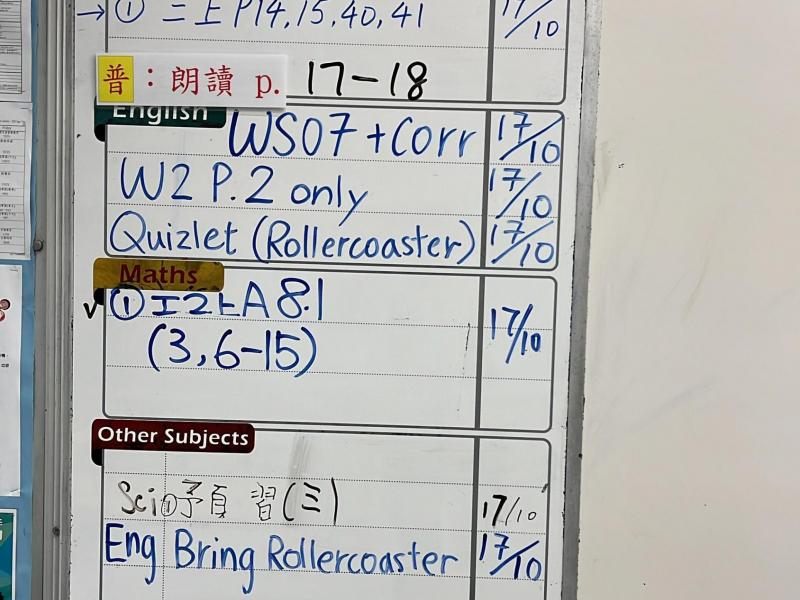 → ① 二上 P14,15,40,41 17/10
普：朗讀 p. 17-18
English
WS07 + Corr 17/10
W2 P.2 only 17/10
Quizlet (Rollercoaster) 17/10
Maths
✓ ① 工2上A 8.1
(3,6-15) 17/10
Other Subjects
Sci ① 予頁 習(三) 17/10
Eng Bring Rollercoaster 17/10